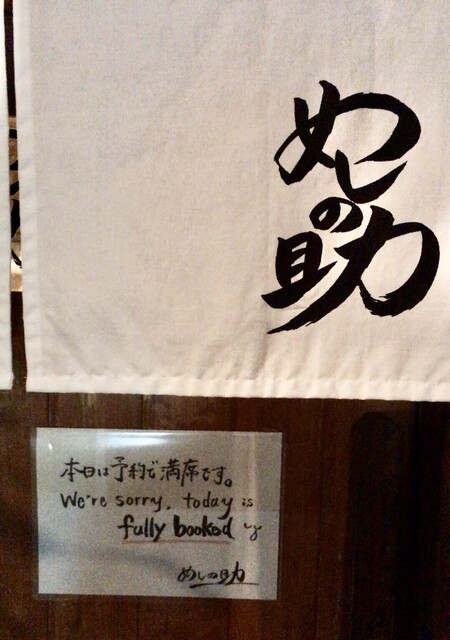 めし
の
助
本日は予約で満席です。
We're sorry, today is
fully booked
めしの助